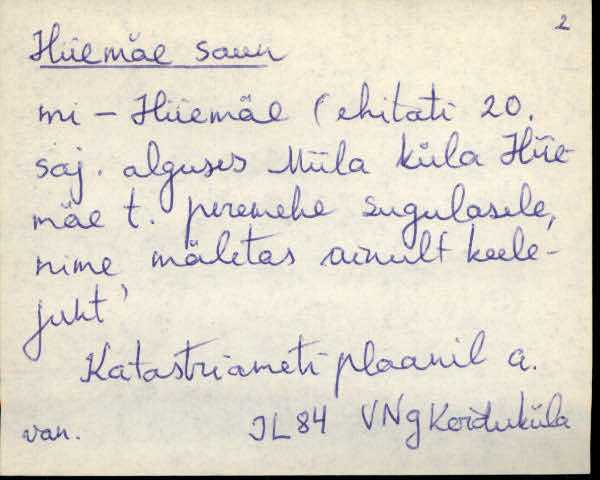 2
Hiiemäe saun
mi – Hiiemäe (ehitati 20.
saj. alguses Miila küla Hiie-
mäe t. peremehe sugulasele,
nime mäletas ainult keele-
juht)
Katastriameti plaanil a.
van. JL 84 VNg Koiduküla